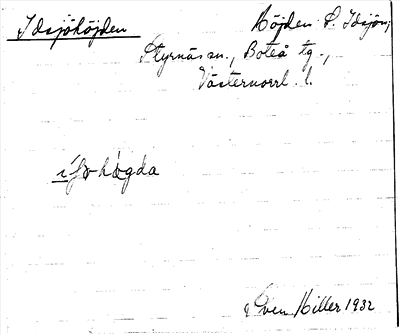 Idsjöhöjden
Höjden S. Idsjön,
Styrnäs sn., Boteå tg.,
Västernorrl. l.
högda
Sven Hiller 1932